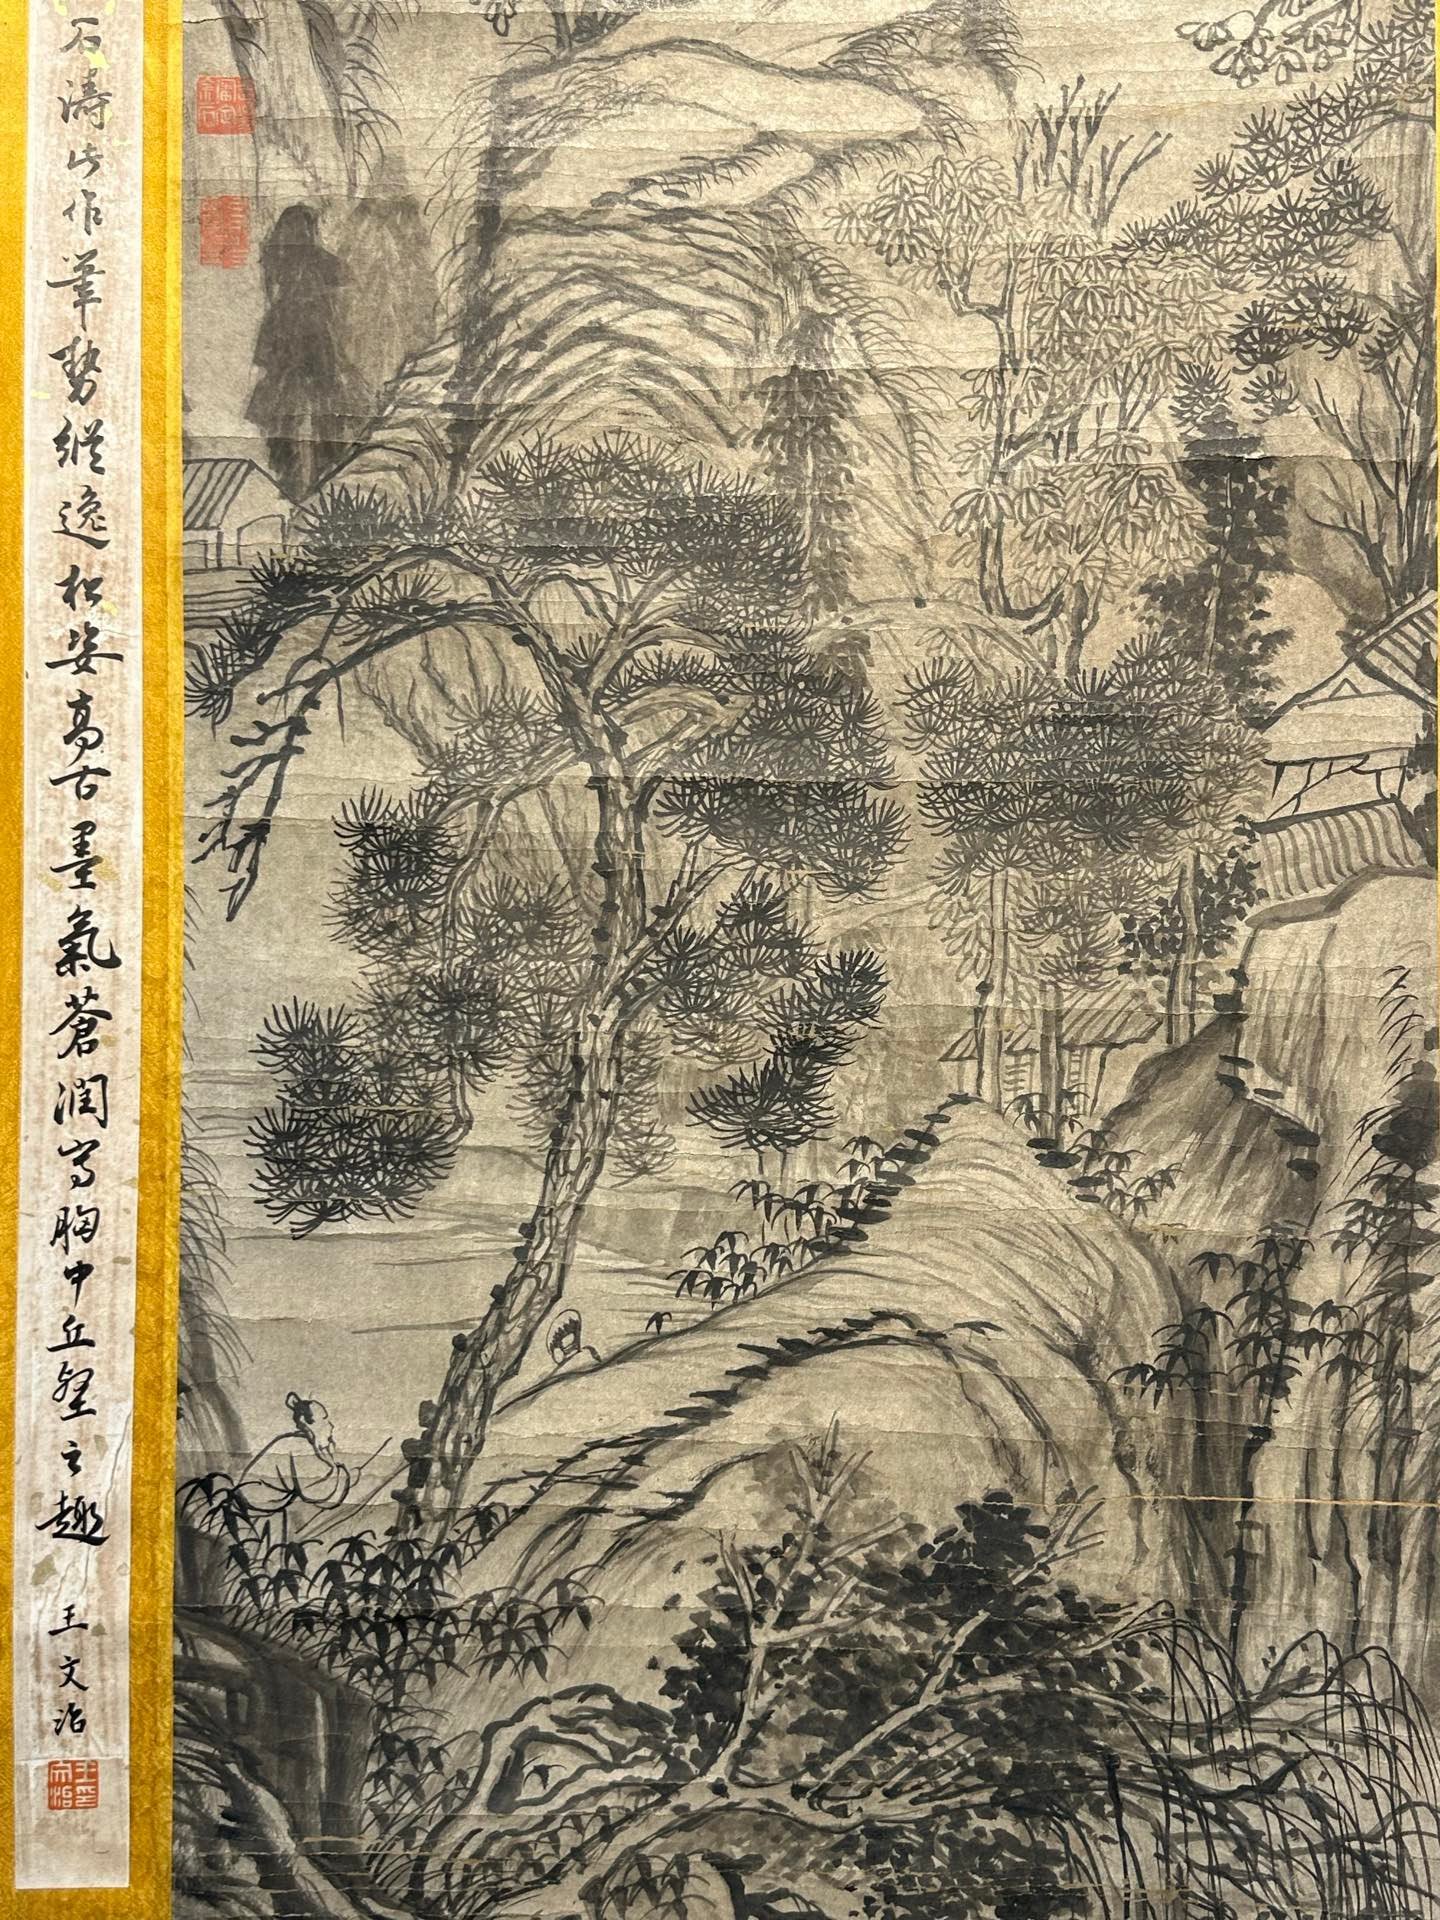 石濤此作筆勢縱逸松姿高古墨氣蒼潤寫胸中丘壑之趣
王文治
王文治印